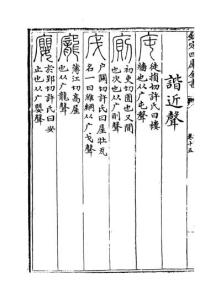 欽定四庫全書
卷十五
諧近聲
庉
徒損切許氏曰樓
牆也从广屯聲
廁
初吏切圊也又間
也次也从广則聲
戶關切許氏曰屋牡瓦
名一曰維綱从广戈聲
龐
薄江切高屋
也从广龍聲
廮
於郢切許氏曰安
止也从广嬰聲